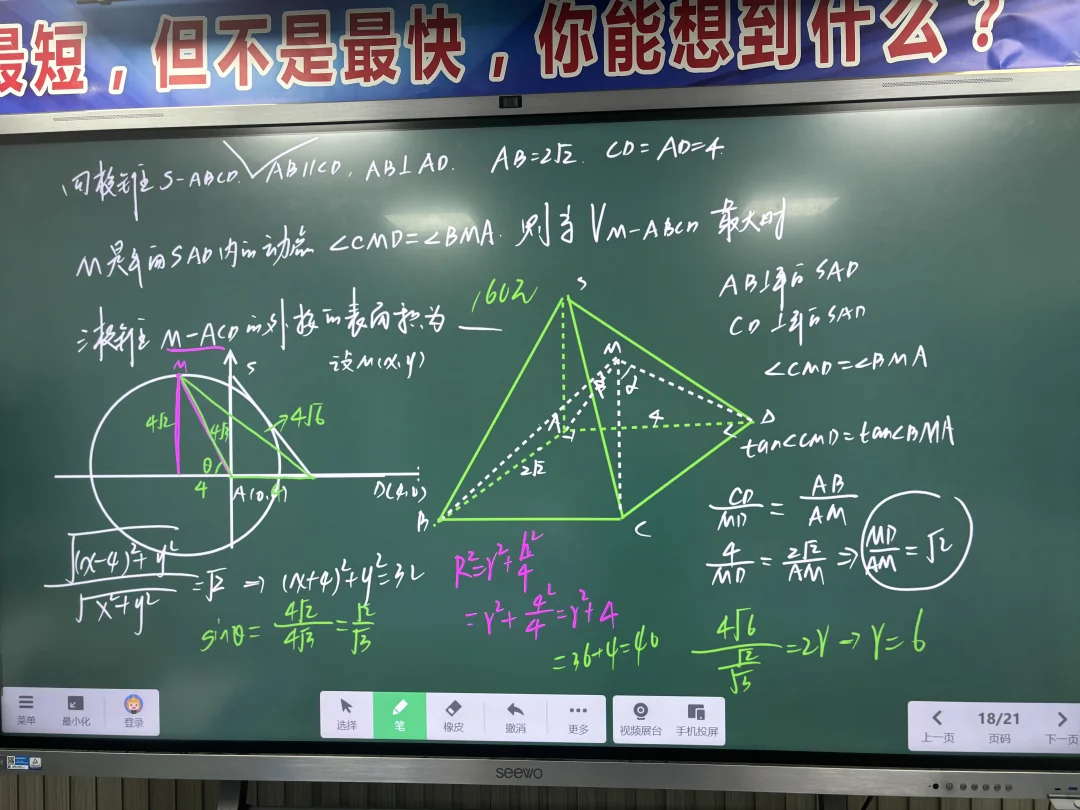 最短，但不是最快，你能想到什么？
四棱锥 S-ABCD. AB//CD, AB⊥AD. AB=2√2. CD=AD=4.
M是平面SAD内的动点 ∠CMD=∠BMA. 则当 V_{M-ABCD} 最大时
三棱锥 M-ACD的外接的表面积为 ___
160π
设M(x,y)
M
S
4√2
4√3
4√6
θ
4
A(0,0)
D(4,0)
√((x-4)²+y²)/√(x²+y²)=√2 → (x+4)²+y²=32
sinθ=4√2/4√3=√2/√3
S
M
α
A
4
D
2√2
B
C
R²=r²+h²/4
=r²+4²/4=r²+4
=36+4=40
AB⊥平面SAD
CD⊥平面SAD
∠CMD=∠BMA
tan∠CMD=tan∠BMA
CD/MD=AB/AM
4/MD=2√2/AM ⇒ MD/AM=√2
4√6/(√2/√3)=2r → r=6
菜单
最小化
登录
选择
笔
橡皮
撤消
更多
视频展台
手机投屏
上一页
18/21
页码
下一页
seewo